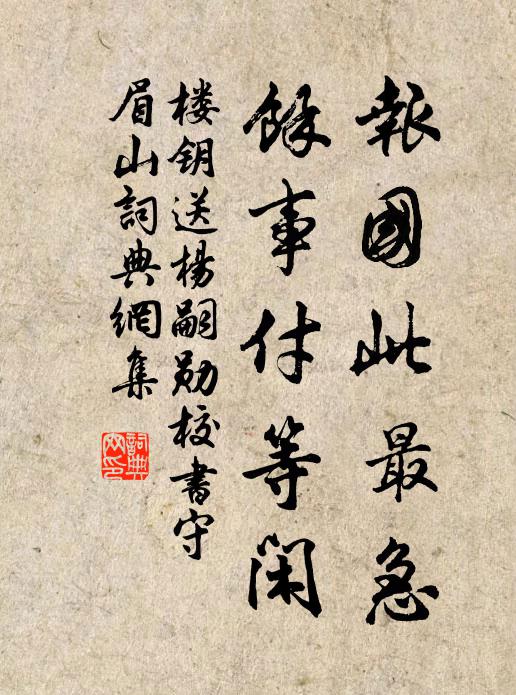 報國此最急
餘事付等閑
楼钥送楊嗣勛校書守
眉山詞典網集
詞典網印